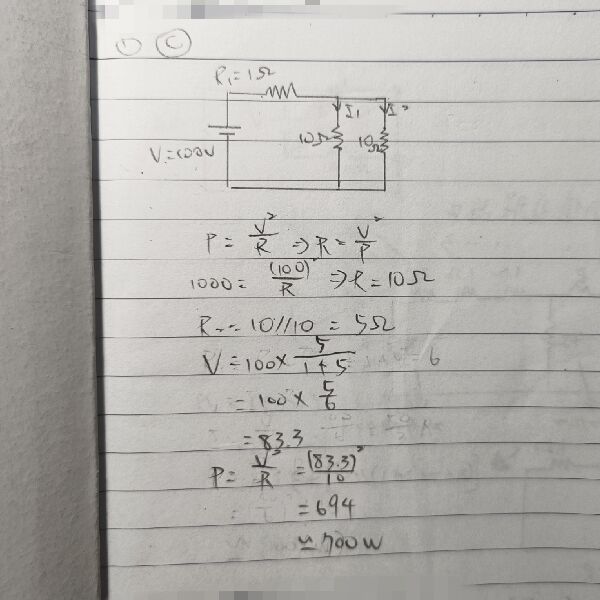 ① Ⓒ
R₁=1Ω
I₁ I₂
10Ω 10Ω
V=100V
P = V²/R ⇒ R = V²/P
1000 = (100)²/R ⇒ R = 10Ω
10//10 = 5Ω
V = 100 × 5/(1+5)
= 100 × 5/6
= 83.3
P = V²/R = (83.3)²/10
= 694
≃ 700W